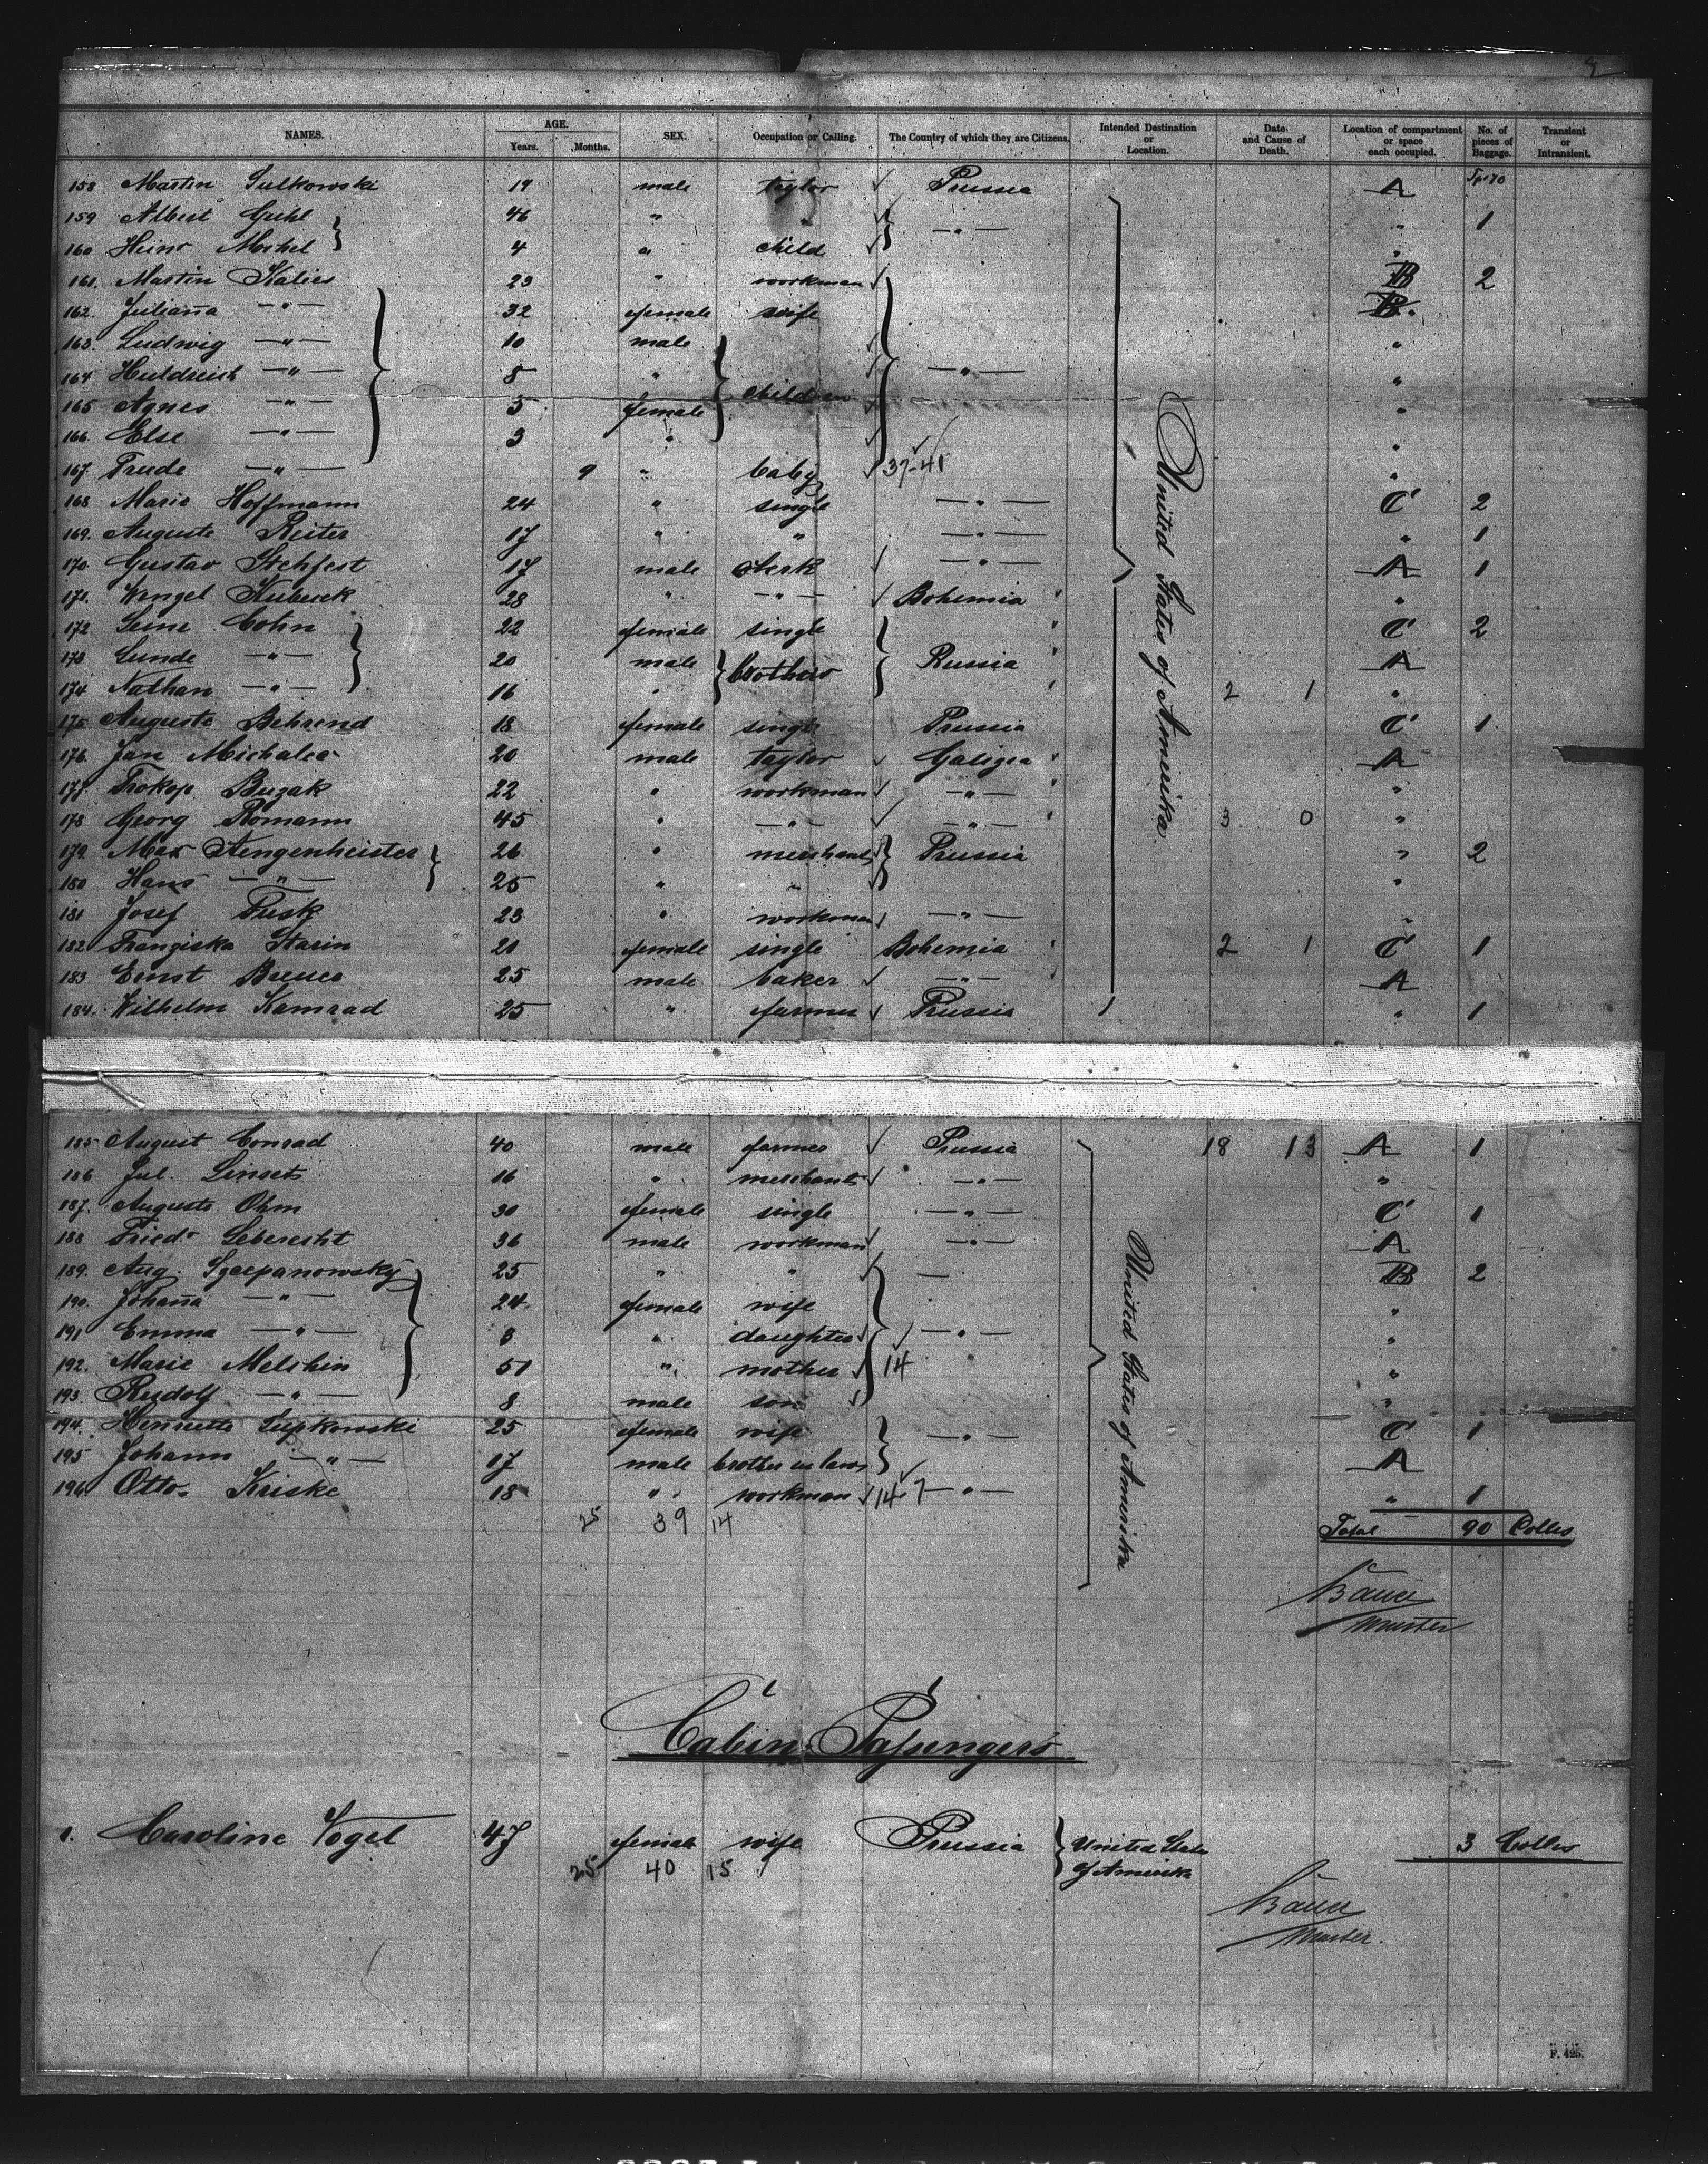 NAMES. AGE. Years. Months. SEX. Occupation or Calling. The Country of which they are Citizens. Intended Destination or Location. Date and Cause of Death. Location of compartment or space each occupied. No. of pieces of Baggage. Transient or Intransient.
158 Martin Sulkowski 19 male taylor Prussia A
159 Albert Guhl 46 " " —"— " 1
160 Heinr. 4 " child "
161. Martin Kalies 23 " workman B 2
162. Juliana —"— 32 female wife B
163. Ludwig —"— 10 male "
164 Huldreich —"— 8 " children —"— "
165 Agnes —"— 5 female "
166. Else —"— 3 " "
167. Trude —"— 9 " baby 37-41 "
168 Marie Hoffmann 24 " single —"— C 2
169. Auguste Reiter 17 " " —"— " 1
170. Gustav Stehfest 17 male clerk —"— A 1
171. Wenzel 28 " —"— Bohemia "
172 Cohn 22 female single C 2
173 —"— 20 male brothers Russia A
174 Nathan —"— 16 " 2 1 "
175 Auguste Behrend 18 female single Prussia C 1
176. Jan 20 male taylor Galizia A
177. Prokop Buzak 22 " workman —"— "
178 Georg Romann 45 " —"— —"— 3 0 "
179. Max 26 " merchant Prussia " 2
180 Hans —"— 25 " " "
181 Josef 23 " workman —"— "
182 Franziska Starin 20 female single Bohemia 2 1 C 1
183 Ernst 25 male baker —"— A
184. Wilhelm Kamrad 25 " farmer Prussia " 1
United States of Amerika
185 August Conrad 40 male farmer Prussia 18 13 A 1
186 Jul. 16 " merchant —"— "
187. Auguste Ohm 30 female single —"— C 1
188 Friedr. Leberecht 36 male workman —"— A
189. Aug. Szcepanowsky 25 " " — B 2
190. Johana —"— 24 female wife "
191 Emma —"— 3 " daughter —"— "
192. Marie 51 " mother 14 "
193 Rudolf —"— 8 male son "
194. Henriette 25 female wife —"— C 1
195 Johann —"— 17 male brother in law A
196 Otto Kriske 18 " workman 14-7 —"— " 1
25 39 14
Total 90 Colles
United States of Amerika
Bauer
Master
Cabin Passengers
1. Caroline Vogel 47 female wife Prussia United States of Amerika 3 Colles
25 40 15
Bauer
Master.
F. 425.